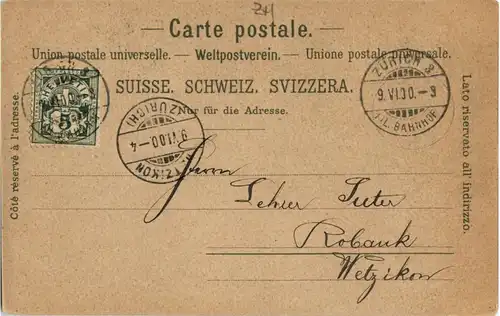 Z41
Carte postale.
Union postale universelle. — Weltpostverein. — Unione postale universale.
SUISSE. SCHWEIZ. SVIZZERA.
Nur für die Adresse.
Côté réservé à l'adresse.
Lato riservato all' indirizzo.
HELVETIA
5
ZÜRICH 8
9.VI.00.-3
FIL. BAHNHOF
(ZÜRICH)
9.VI.00.-4
WETZIKON
Herrn
Lehrer Suter
Robank
Wetzikon